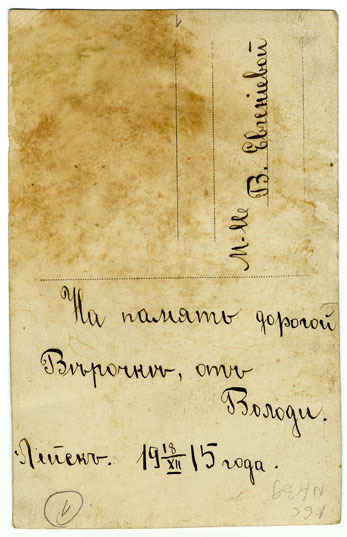 M-lle
В. Евгеніевой
На память дорогой
Вѣрочкѣ, отъ
Володи.
19 18/XII 15 года.
1